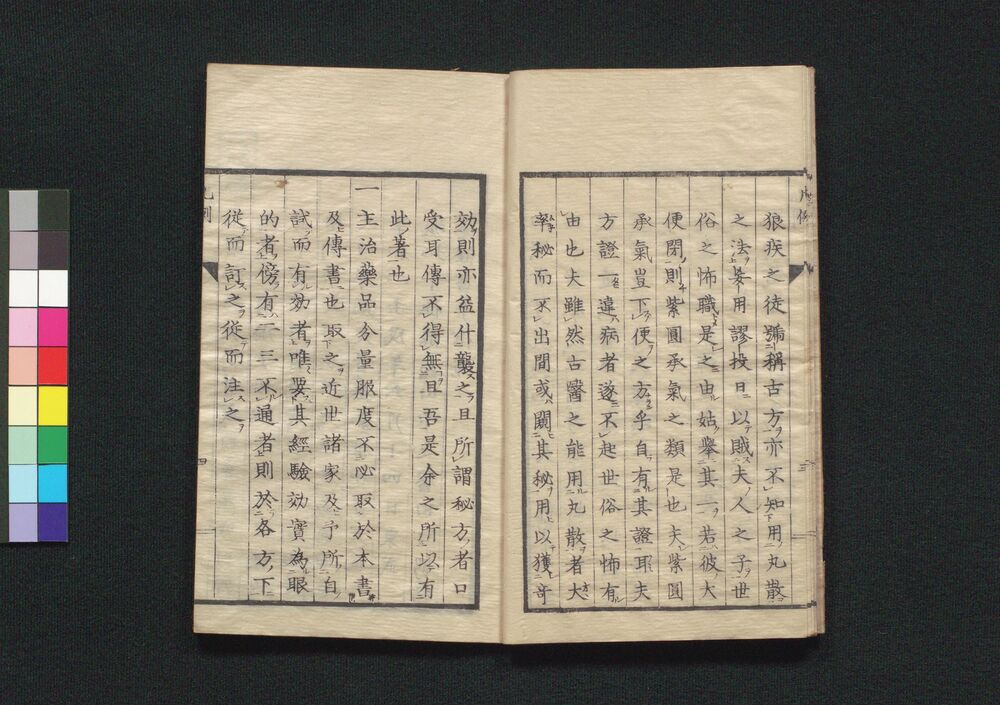 狼疾之徒號稱古方亦不知用丸散
之法妄用謬投日以賊夫人之子世
俗之怖職是之由姑舉其一若彼大
便閉則紫圓承氣之類是也夫紫圓
承氣豈下便之方乎自有其證耶夫
方證一違病者遂不起世俗之怖有
由也夫雖然古醫之能用丸散者大
率秘而不出間或闚其秘用以獲奇
效則亦益什襲之且所謂秘方者口
受耳傳不得無且吾是余之所以有
此著也
一主治藥品分量服度不必取於本書
及傳書也取之近世諸家及予所自
試而有効者唯要其經驗効實為眼
的者傍有二三不通者則於各方下
從而訂之從而注之
凡例
三
四